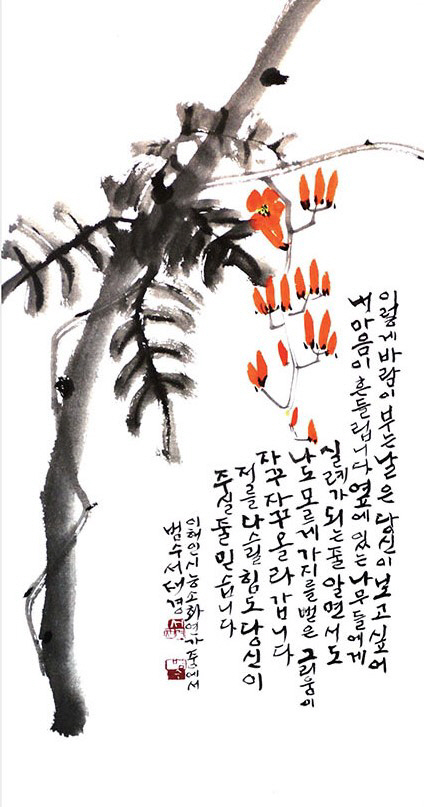 이렇게 바람이 부는 날은 당신이 보고 싶어
내 마음이 흔들립니다 옆에 있는 나무들에게
실례가 되는 줄 알면서도
나도 모르게 가지를 뻗은 그리움이
자꾸 자꾸 올라갑니다
저를 다스릴 힘도 당신이
주실 줄 믿습니다
이해인 시 능소화 연가 중에서
범수 서태경